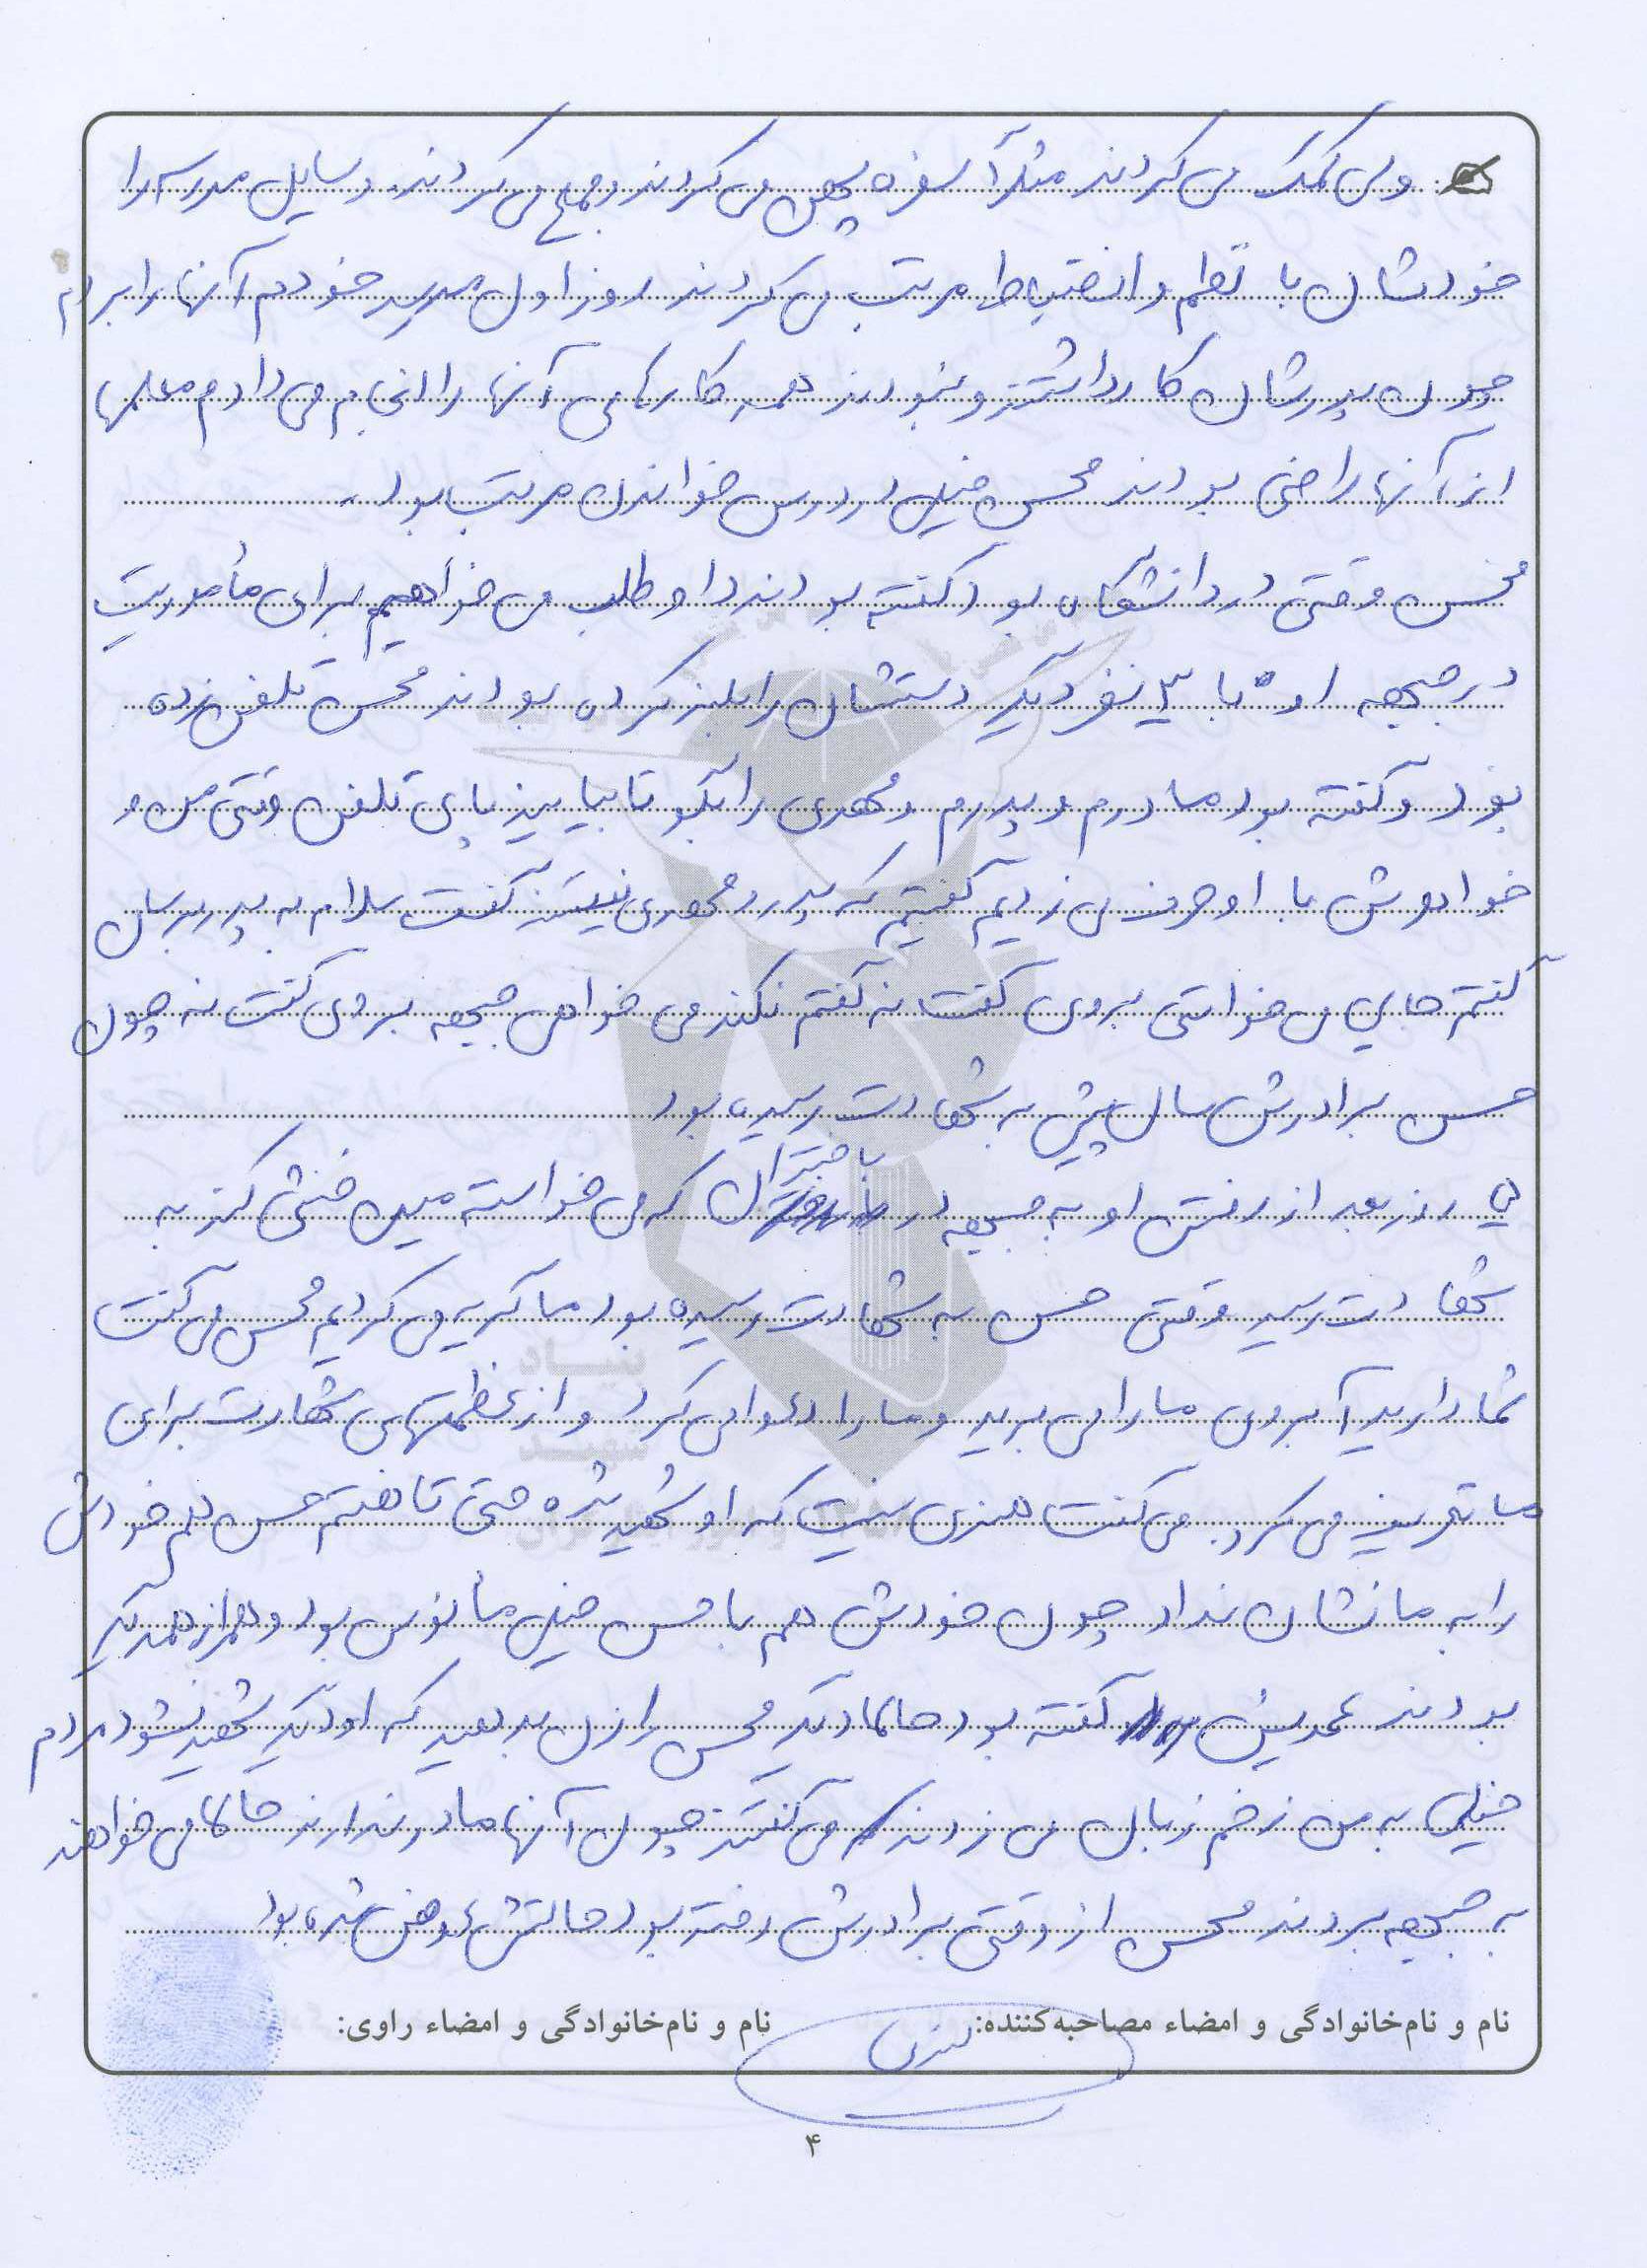 ولی کمک می کردند مثلاً سفره پهن می کردند و جمع می کردند. وسایل مدرسه را
خودشان با نظم و انضباط مرتب می کردند روز اول مدرسه خودم آنها را بردم
چون پدرشان کار داشتند و نبودند همه کارهای آنها را انجام می دادم معلمها
از آنها راضی بودند محسن خیلی در درس خواندن مرتب بود.
محسن وقتی در دانشگاه بود گفته بودند داوطلب می خواهیم برای مأموریت
در جبهه او با ۳ نفر دیگر دستشان را بلند کرده بودند محسن تلفن زده
بود و گفته بود مادرم و پدرم و مهدی را بگو تا بیایند پای تلفن وقتی من و
خواهرش با او حرف می زدیم گفتیم که پدر و مهدی نیستند گفت سلام به پدر برسان
گفتم جایی می خواستی بروی گفت نه گفتم نکند می خواهی جبهه بروی گفت نه چون
حسن برادرش سال پیش به شهادت رسیده بود
روز بعد از رفتن او به جبهه در باختران که می خواسته مین خنثی کند به
شهادت رسید وقتی حسن به شهادت رسیده بود ما گریه می کردیم محسن می گفت
شما دارید آبروی ما را می برید و ما را دعوا می کرد و از عظمتهای شهادت برای
ما تعریف می کرد. می گفت هنری نیست که او شهید شده حتی تا هفتم حسن هم خودش
را به ما نشان نداد چون خودش هم با حسن خیلی مأنوس بود و همراز همدیگر
بودند عمه یش گفته بود حالا دیگر محسن را زن بدهید که او دیگر شهید نشود مردم
خیلی به من زخم زبان می زدند می گفتند چون آنها مادر ندارند حالا می خواهند
به جبهه بروند محسن از وقتی برادرش رفته بود حالتش عوض شده بود
نام و نام‌خانوادگی و امضاء مصاحبه‌کننده:
نام و نام‌خانوادگی و امضاء راوی:
۴